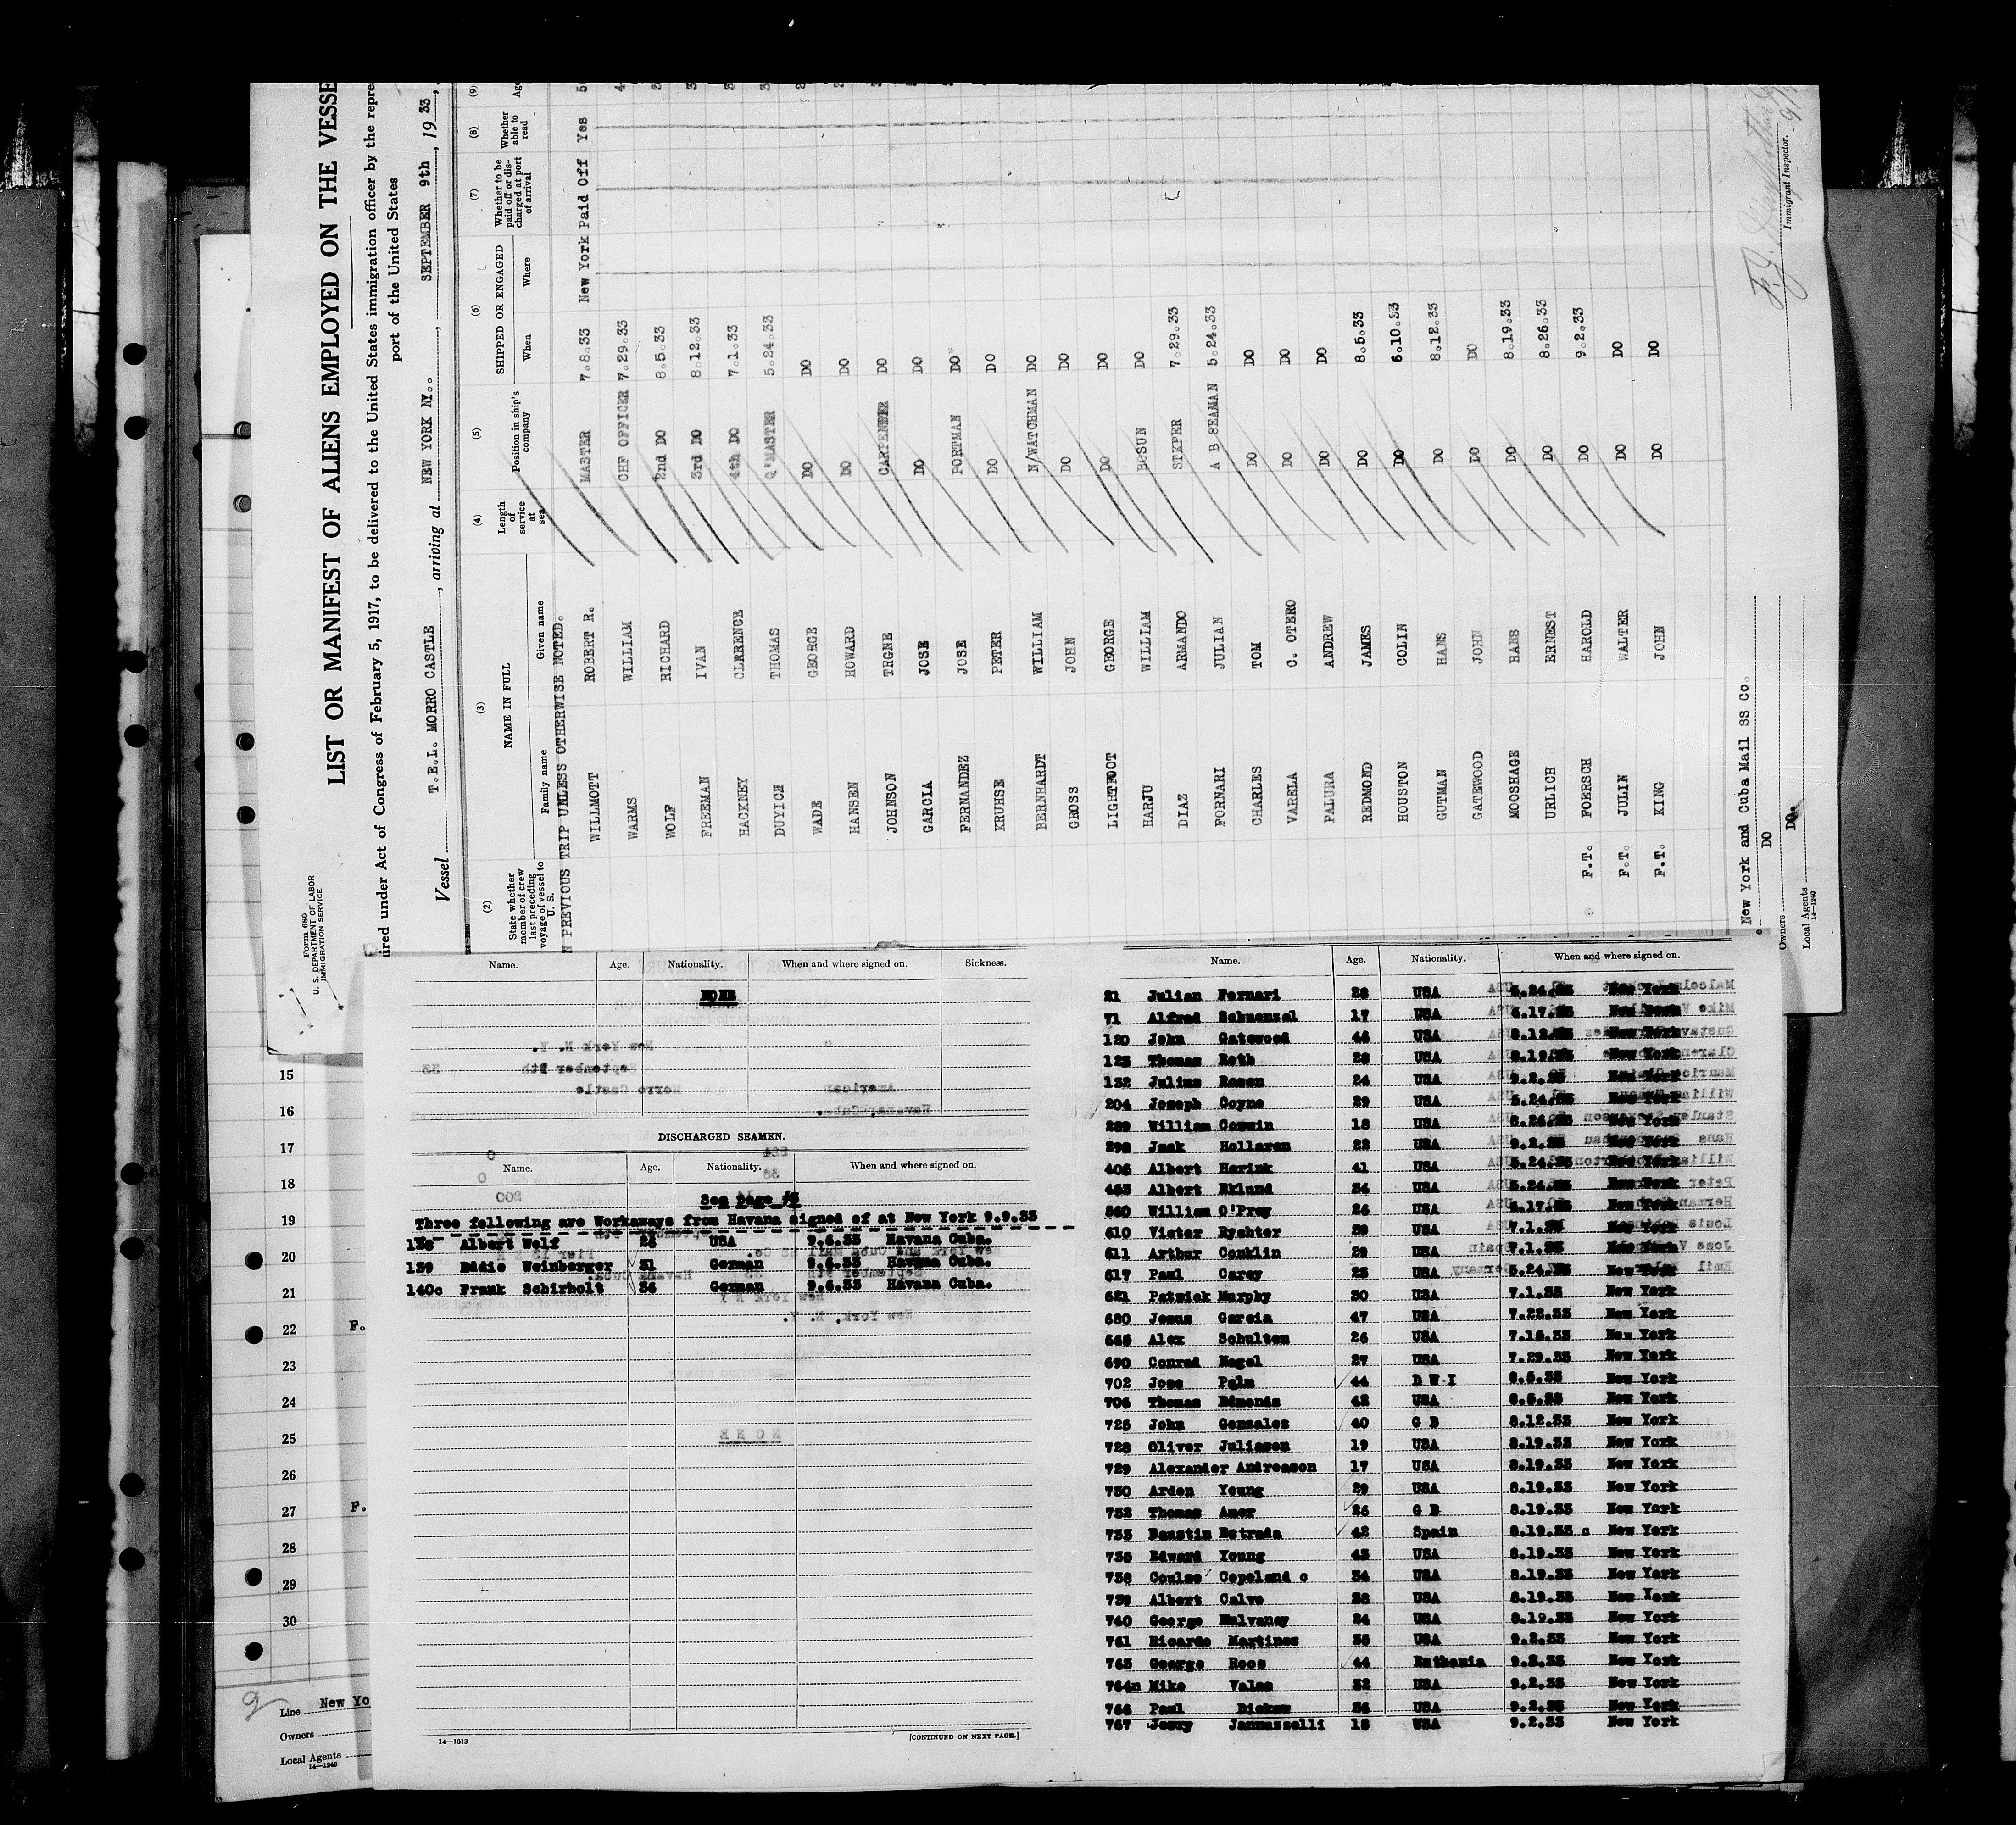 Form 680
U. S. DEPARTMENT OF LABOR
IMMIGRATION SERVICE
LIST OR MANIFEST OF ALIENS EMPLOYED ON THE VESSE
ired under Act of Congress of February 5, 1917, to be delivered to the United States immigration officer by the repre
port of the United States
Vessel T.E.L. MORRO CASTLE, arriving at NEW YORK, SEPTEMBER 9th, 1933,
(2) (3) (4) (5) (6) (7) (8) (9)
State whether member of crew last preceding voyage of vessel to U. S.
NAME IN FULL
Family name Given name
Length of service at sea
Position in ship's company
SHIPPED OR ENGAGED
When Where
Whether to be paid off or discharged at port of arrival
Whether able to read
Ag
N PREVIOUS TRIP UNLESS OTHERWISE NOTED.
WILLMOTT ROBERT R. MASTER 7.8.33 New York Paid Off Yes
WARMS WILLIAM CHF OFFICER 7.29.33
WOLF RICHARD 2nd DO 8.5.33
FREEMAN IVAN 3rd DO 8.12.33
HACKNEY CLRRENCE 4th DO 7.1.33
DUYICH THOMAS Q'MASTER 5.24.33
WADE GEORGE DO DO
HANSEN HOWARD DO DO
JOHNSON TRGNE CARPENTER DO
GARCIA JOSE DO DO
FERNANDEZ JOSE PORTMAN DO
KRUHSE PETER DO DO
BERNHARDT WILLIAM N/WATCHMAN DO
GROSS JOHN DO DO
LIGHTFOOT GEORGE DO DO
HARJU WILLIAM BOSUN DO
DIAZ ARMANDO STKPER 7.29.33
FORNARI JULIAN A B SEAMAN 5.24.33
CHARLES TOM DO DO
VARELA C. OTERO DO DO
PALURA ANDREW DO DO
REDMOND JAMES DO 8.5.33
HOUSTON COLIN DO 6.10.33
GUTMAN HANS DO 8.12.33
GATEWOOD JOHN DO DO
MOOSHAGE HANS DO 8.19.33
URLICH ERNEST DO 8.26.33
F.T. FOERSCH HAROLD DO 9.2.33
F.T. JULIN WALTER DO DO
F.T. KING JOHN DO DO
New York and Cuba Mail SS Co.
Owners DO
Local Agents DO.
14—1240
Immigrant Inspector.
Name. Age. Nationality. When and where signed on. Sickness.
NONE
DISCHARGED SEAMEN.
Name. Age. Nationality. When and where signed on.
See page #3
Three following are Workaways from Havana signed of at New York 9.9.33
138 Albert Wolf 23 USA 9.6.33 Havana Cuba.
139 Eddie Weinberger 31 German 9.6.33 Havana Cuba.
140c Frank Schirholt 36 German 9.6.33 Havana Cuba.
14—1613
[CONTINUED ON NEXT PAGE.]
Name. Age. Nationality. When and where signed on.
21 Julian Fornari 28 USA 5.24.33 New York
71 Alfred Schmensel 17 USA 6.17.33 New York
120 John Gatewood 46 USA 8.12.33 New York
123 Thomas Roth 28 USA 8.19.33 New York
132 Julius Rosen 24 USA 9.2.33 New York
204 Joseph Coyne 29 USA 5.24.33 New York
289 William Corwin 18 USA 8.26.33 New York
298 Jack Holloran 22 USA 9.2.33 New York
406 Albert Horink 41 USA 5.24.33 New York
463 Albert Eklund 34 USA 5.24.33 New York
560 William O'Prey 26 USA 6.17.33 New York
610 Victor Rychter 39 USA 7.1.33 New York
611 Arthur Conklin 29 USA 7.1.33 New York
617 Paul Carey 23 USA 5.24.33 New York
621 Patrick Murphy 30 USA 7.1.33 New York
680 Jesus Garcia 47 USA 7.22.33 New York
665 Alex Schulten 26 USA 7.15.33 New York
690 Conrad Nagel 27 USA 7.29.33 New York
702 Jose Palm 44 D W I 8.5.33 New York
706 Thomas Edmonds 42 USA 8.5.33 New York
725 John Gonzales 40 G B 8.12.33 New York
728 Oliver Juliason 19 USA 8.19.33 New York
729 Alexander Andreason 17 USA 8.19.33 New York
730 Arden Young 29 USA 8.19.33 New York
732 Thomas Amor 26 G B 8.19.33 New York
733 Faustin Estrada 42 Spain 8.19.33 New York
736 Edward Young 43 USA 8.19.33 New York
738 Coulse Copeland 34 USA 8.19.33 New York
739 Albert Calvo 38 USA 8.19.33 New York
740 George Mulvaney 24 USA 8.19.33 New York
761 Ricardo Martines 36 USA 9.2.33 New York
763 George Roos 44 Ruthenia 9.2.33 New York
764 Mike Valas 32 USA 9.2.33 New York
766 Paul Dickow 36 USA 9.2.33 New York
767 Jerry Jannuzzelli 18 USA 9.2.33 New York
15
16
17
18
19
20
21
22 F.
23
24
25
26
27 F.
28
29
30
Line New Yo
Owners
Local Agents
14—1240